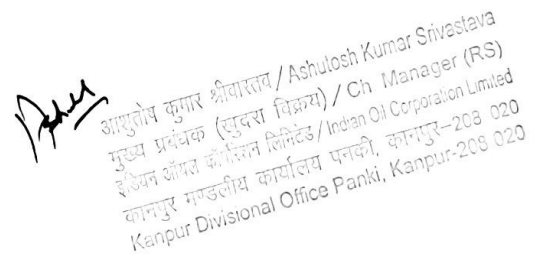 आशुतोष कुमार श्रीवास्तव / Ashutosh Kumar Srivastava
मुख्य प्रबंधक (खुदरा विक्रय) / Ch Manager (RS)
इंडियन ऑयल कॉर्पोरेशन लिमिटेड / Indian Oil Corporation Limited
कानपुर मण्डलीय कार्यालय पनकी, कानपुर–208 020
Kanpur Divisional Office Panki, Kanpur-208 020